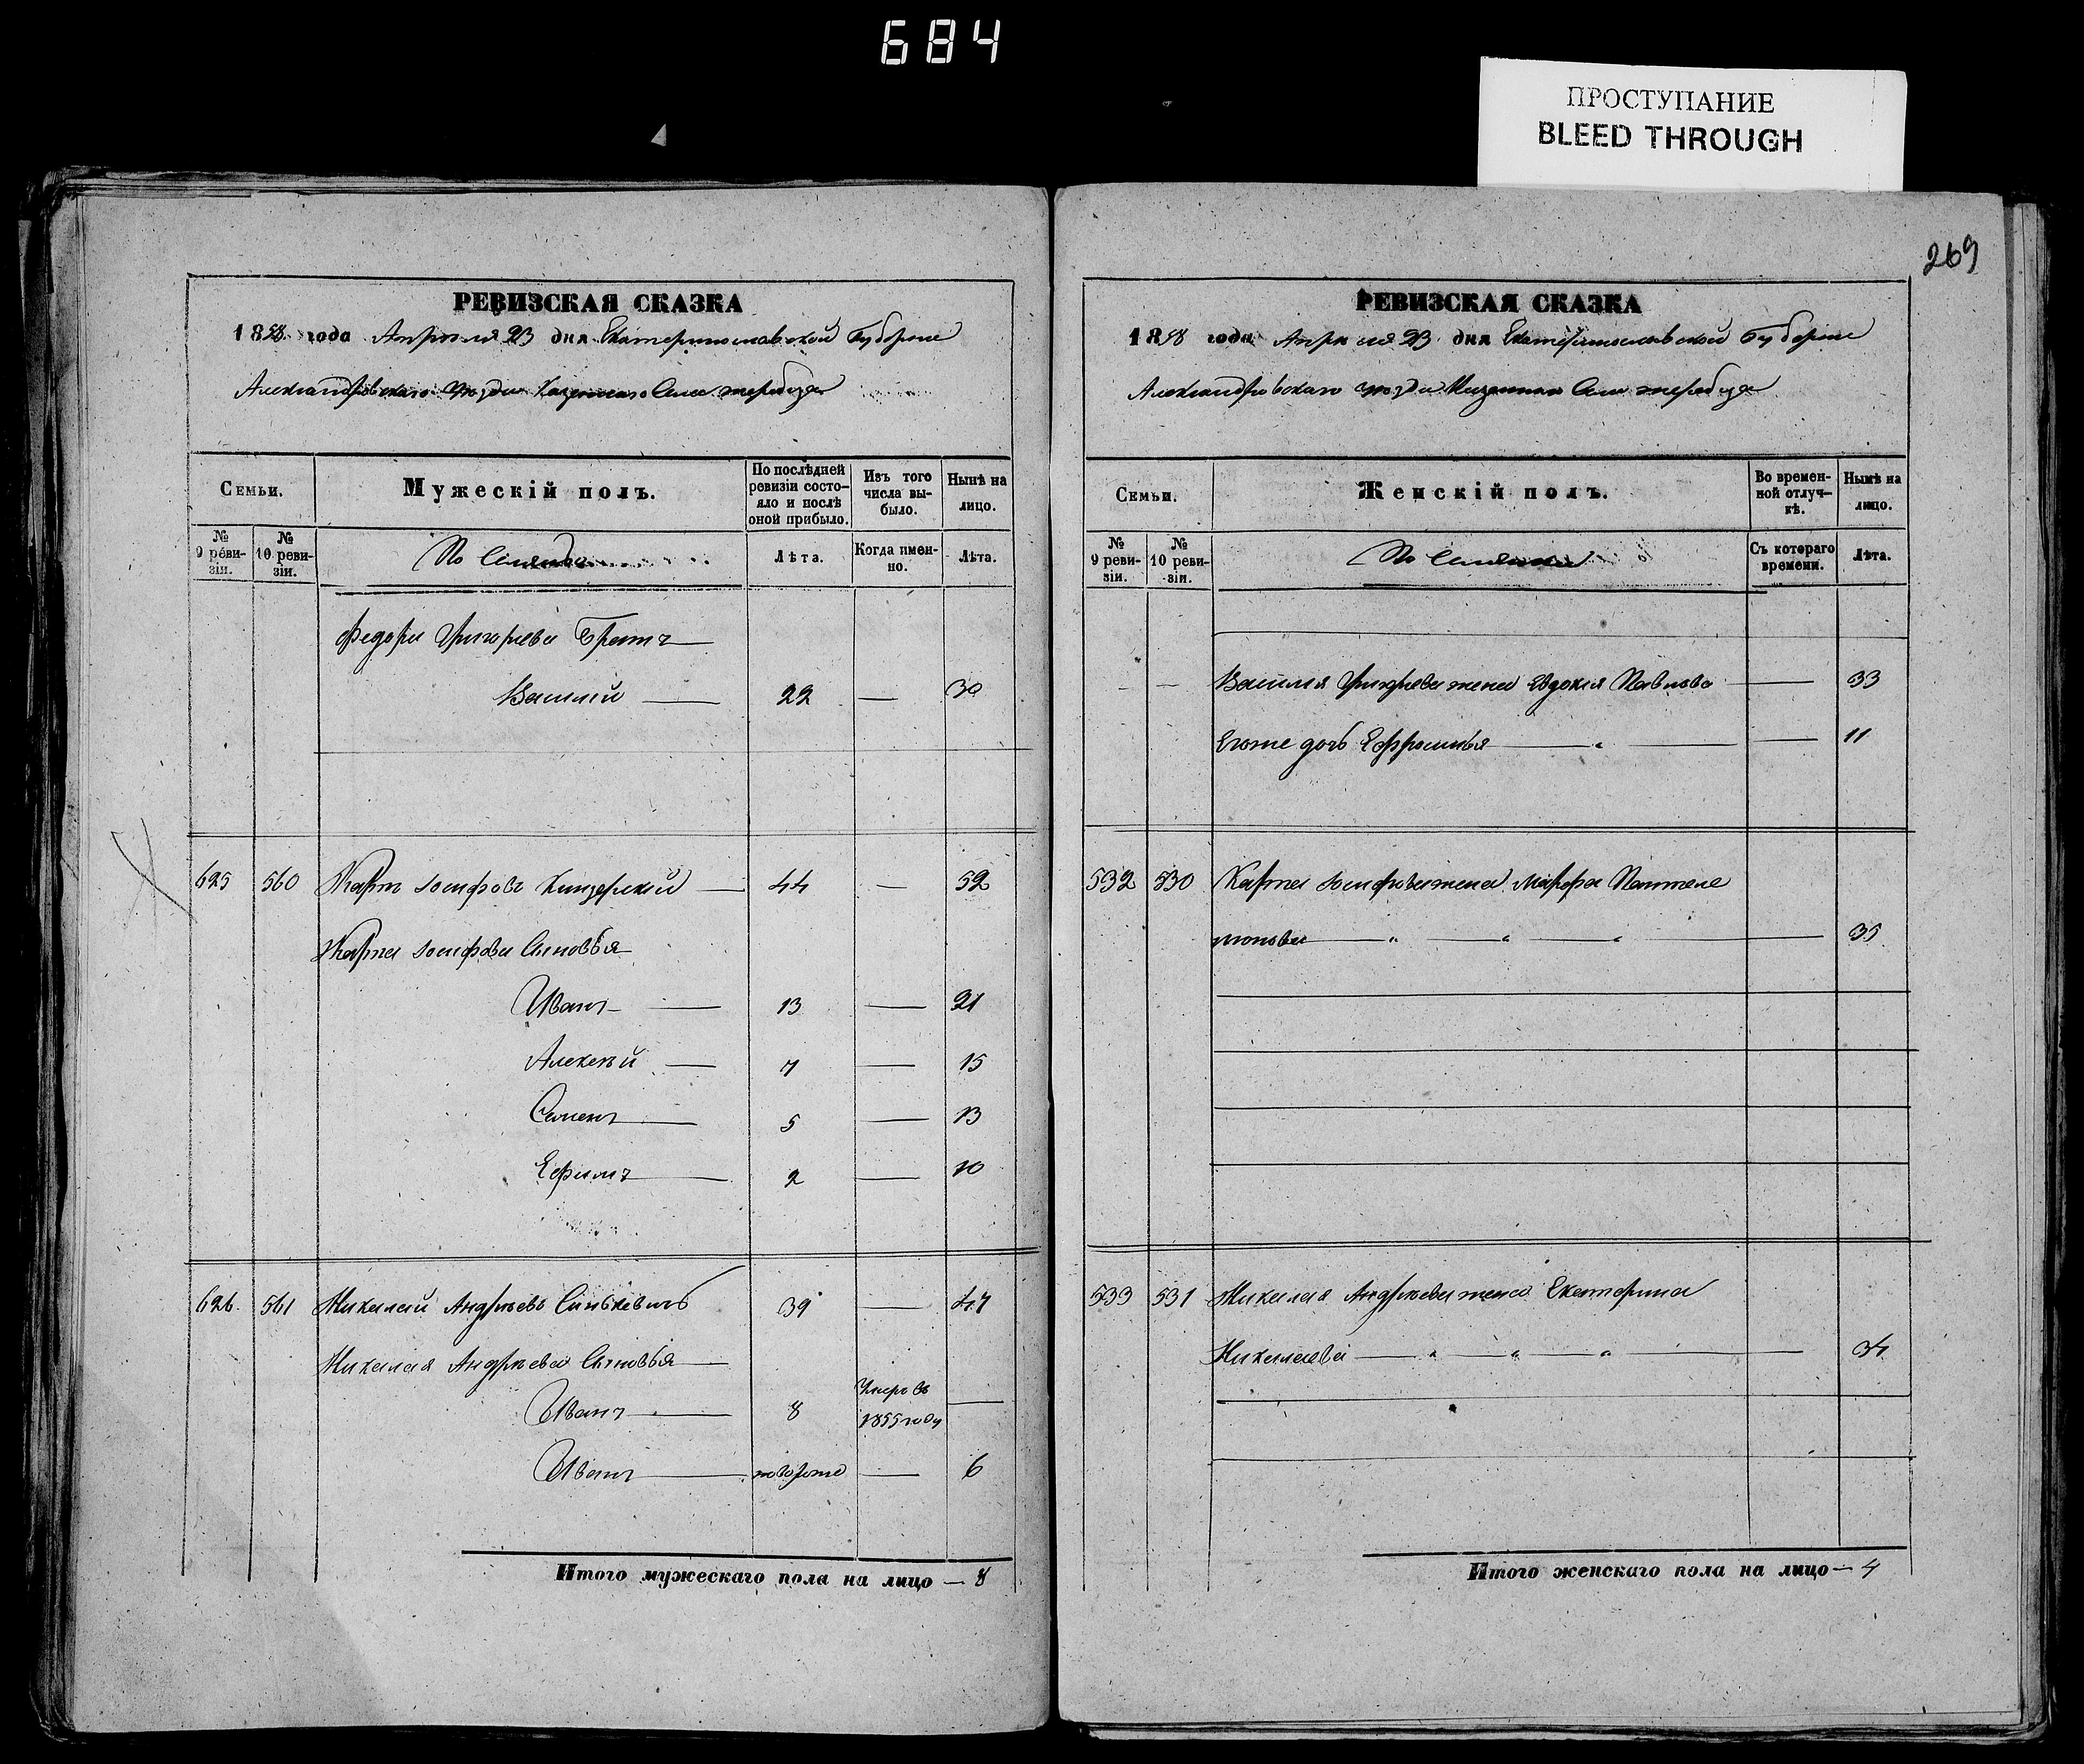 684
ПРОСТУПАНИЕ
BLEED THROUGH
269
РЕВИЗСКАЯ СКАЗКА
1858 года Апреля 23 дня Екатеринославской Губернии
Александровскаго уезда Казеннаго Села жеребца
Семьи.
Мужескій полъ.
По послѣдней ревизіи состояло и послѣ оной прибыло.
Изъ того числа выбыло.
Нынѣ на лицо.
№ 9 ревизіи.
№ 10 ревизіи.
Лѣта.
Когда именно.
Лѣта.
Федора Григорьева Братъ
Василий 22 — 30
625 560 Карпъ Іосифовъ — 44 — 52
Карпа Іосифова Сыновья
Иванъ — 13 — 21
Алексѣй — 7 — 15
Семенъ — 5 — 13
Ефимъ — 2 — 10
626 561 Николай Андрѣевъ Синькевичъ 39 — 47
Николая Андрѣева Сыновья
Иванъ — 8 Умеръ въ 1855 году —
Иванъ — новорожде — 6
Итого мужескаго пола на лицо — 8
РЕВИЗСКАЯ СКАЗКА
1858 года Апреля 23 дня Екатеринославской Губернии
Александровскаго уезда Казеннаго Села жеребца
Семьи.
Женскій полъ.
Во временной отлучкѣ.
Нынѣ на лицо.
№ 9 ревизіи.
№ 10 ревизіи.
Съ котораго времени.
Лѣта.
Василия Григорьева жена Евдокия Павлова — 33
Егоже дочь Ефросинья — 11
532 530 Карпа Іосифова жена Марфа Пантеле
монова — 35
533 531 Николая Андрѣева жена Екатерина
Николаева — 34
Итого женскаго пола на лицо — 4